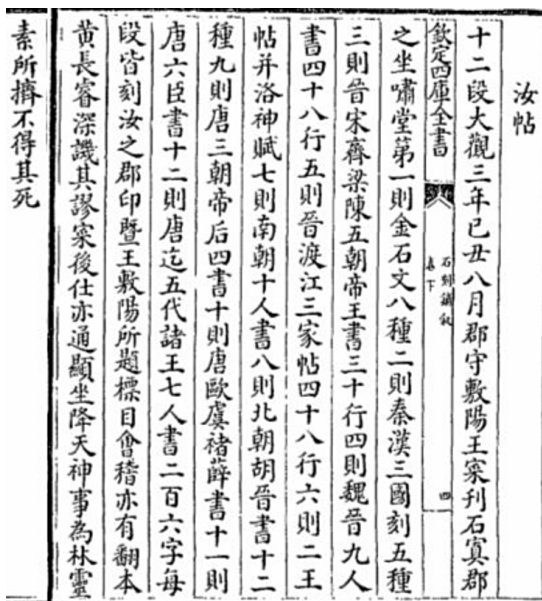 汝帖
十二段大觀三年己丑八月郡守敷陽王寀刋石寘郡
欽定四庫全書
石刻鋪敘
卷下
四
之坐嘯堂第一則金石文八種二則秦漢三國刻五種
三則晉宋齊梁陳五朝帝王書三十行四則魏晉九人
書四十八行五則晉渡江三家帖四十八行六則二王
帖并洛神賦七則南朝十人書八則北朝胡晉書十二
種九則唐三朝帝后四書十則唐歐虞褚薛書十一則
唐六臣書十二則唐迄五代諸王七人書二百六字每
段皆刻汝之郡印暨王敷陽所題標目會稽亦有翻本
黄長睿深譏其謬寀後仕亦通顯坐降天神事為林靈
素所擠不得其死